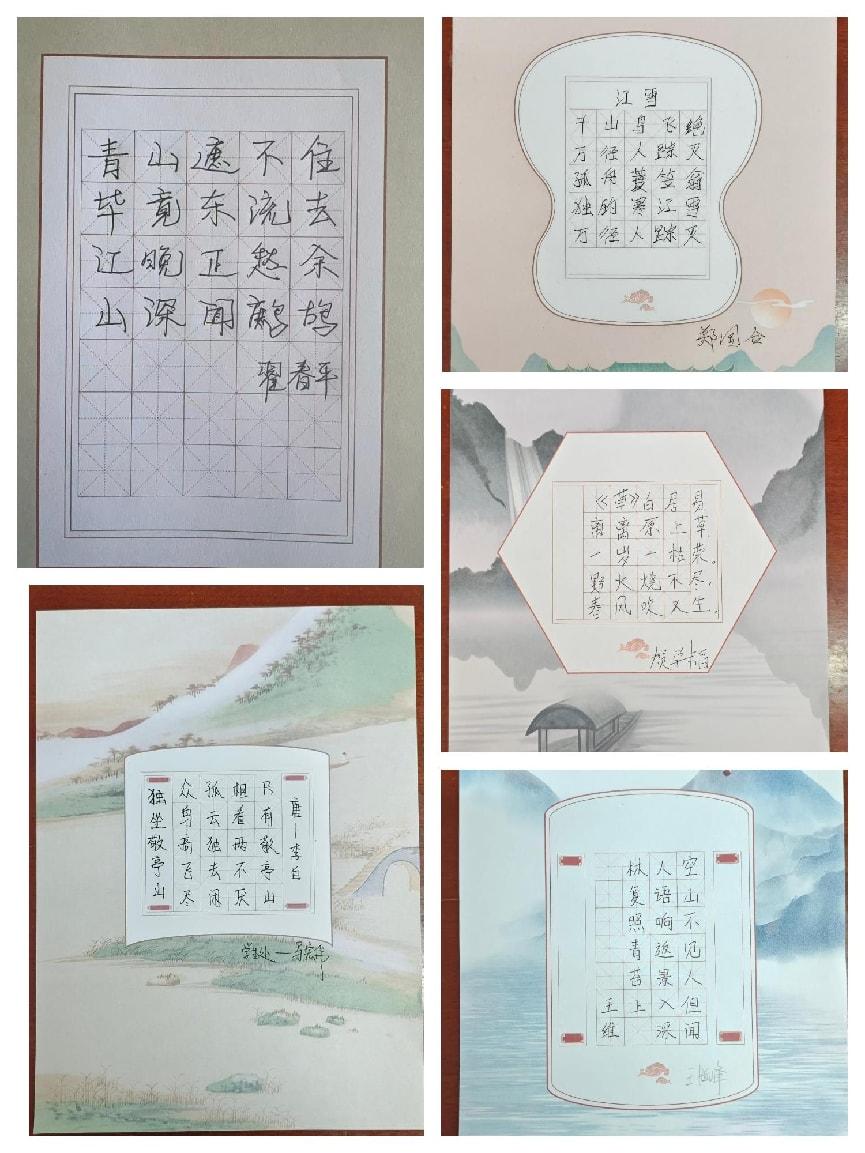 青山遮不住
毕竟东流去
江晚正愁余
山深闻鹧鸪
翟春平
江雪
千山鸟飞绝
万径人踪灭
孤舟蓑笠翁
独钓寒江雪
万径人踪灭
《草》白居易
离离原上草
一岁一枯荣。
野火烧不尽，
春风吹又生。
独坐敬亭山
众鸟高飞尽
孤云独去闲
相看两不厌
只有敬亭山
唐—李白
学生处
空山不见人但闻
人语响返景入深
林复照青苔上
王维